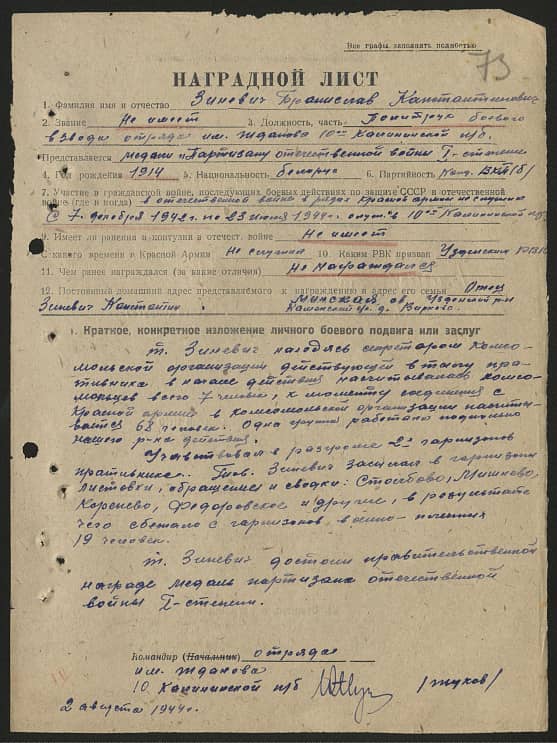 Все графы заполнять полностью
73
НАГРАДНОЙ ЛИСТ
1. Фамилия имя и отчество Зиневич Бранислав Канстантинович
2. Звание Не имеет 3. Должность, часть Политрук боевого
взвода отряда им. Жданова 10ой Калининской п/б.
Представляется медали „Партизану отечественной войны I-степени
4. Год рождения 1914 5. Национальность белорус 6. Партийность Канд. ВКП(б)
7. Участие в гражданской войне, последующих боевых действиях по защите СССР и отечественной
войне (где и когда) в отечественной войне в рядах красной армии не служил
С 7 декабря 1942 г. по 23 июня 1944 г. 10ой Калининской п/б
9. Имеет ли ранения и контузия в отечест. войне Не имеет
С какого времени в Красной Армии Не служил 10. Каким РВК призван Узденским РВК
11. Чем ранее награждался (за какие отличия) Не награждался
12. Постоянный домашний адрес представляемого к награждению и адрес его семьи Отец
Зиневич Константин Минская об. Узденский р-н
д.
I. Краткое, конкретное изложение личного боевого подвига или заслуг
т. Зиневич находясь секретаром комсо-
мольской организации действующей в тылу пра-
тивника в начале действия насчитывалось комсо-
мольцев всего 7 человек, к моменту соединения с
Красной армией в комсомольской организации насчиты-
вается 68 человек. Одна группа работала подпольно
нашего р-на действия.
Учавствовал в разгроме 2х гарнизонов
пративника. Тов. Зиневич засылал в гарнизоны
листовки, обращения и сводки: Столбово, Мишнево,
Коренево, Федоровское и другие, в результате
чего сбежало с гарнизонов, военно-пленных
19 человек.
т. Зиневич достоин правительственной
награде медаль партизана отечественной
войны I-степени.
Командир (Начальник) отряда
им. Жданова
10. Калининской п/б /Жуков/
2 августа 1944 г.